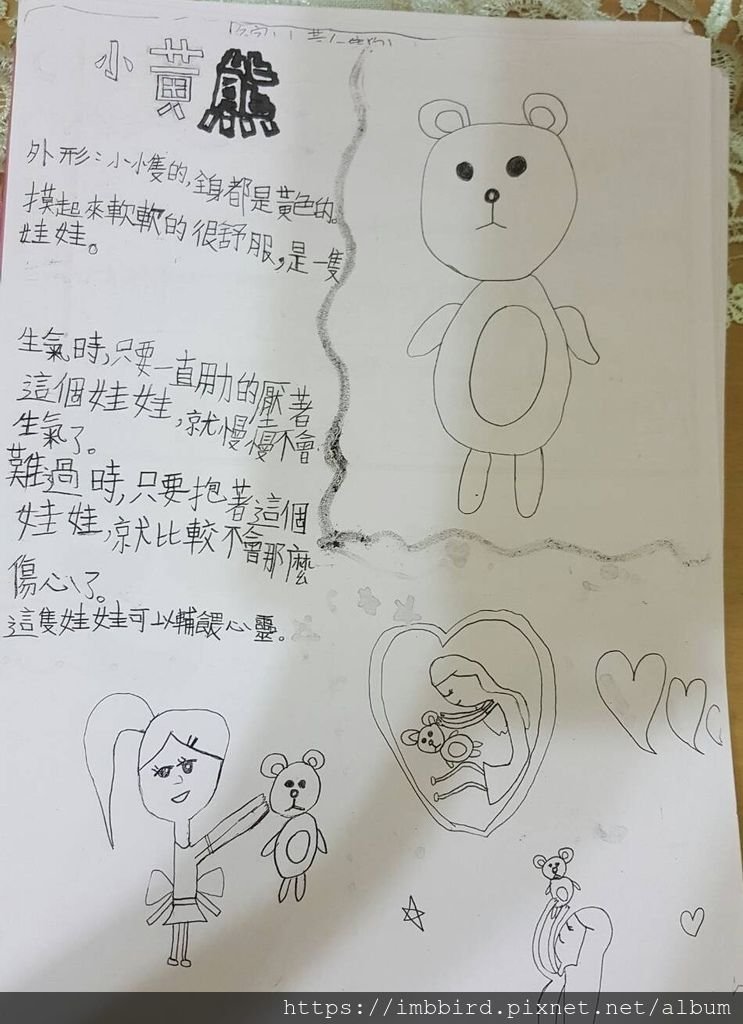 小黃熊
外形：小小隻的,全身都是黃色的。
摸起來軟軟的很舒服,是一隻
娃娃。
生氣時,只要一直用力的壓著
這個娃娃,就慢慢不會
生氣了。
難過時,只要抱著這個
娃娃,就比較不會那麼
傷心了。
這隻娃娃可以輔餵心靈。
https://imbbird.pixnet.net/album